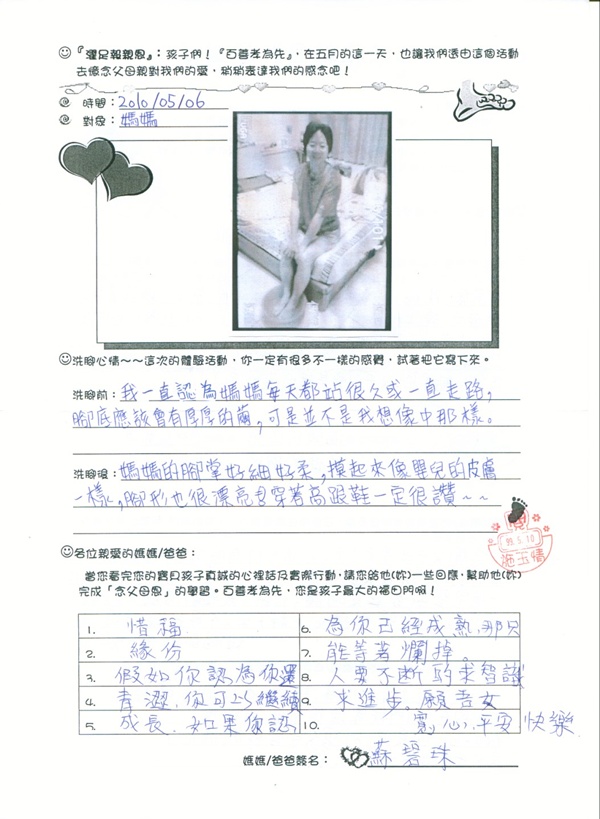 『濯足報親恩』：孩子們！『百善孝為先』，在五月的這一天，也讓我們透由這個活動
去憶念父母親對我們的愛，稍稍表達我們的感念吧！
時間：2010/05/06
對象：媽媽
洗腳心情～～這次的體驗活動，你一定有很多不一樣的感覺，試著把它寫下來。
洗腳前：我一直認為媽媽每天都站很久或一直走路，
腳底應該會有厚厚的繭，可是並不是我想像中那樣。
洗腳後：媽媽的腳掌好細好柔，摸起來像嬰兒的皮膚
一樣，腳形也很漂亮，穿著高跟鞋一定很讚～～
99.5.10
施玉情
各位親愛的媽媽/爸爸：
當您看完您的寶貝孩子真誠的心裡話及實際行動，請您給他(妳)一些回應，幫助他(妳)
完成「念父母恩」的學習。百善孝為先，您是孩子最大的福田門啊！
1. 惜福
2. 緣份
3. 假如你認為你還
4. 青澀，你可以繼續
5. 成長，如果你認
6. 為你已經成熟，那只
7. 能等著爛掉。
8. 人要不斷的求智識
9. 求進步。願吾女
10. 寬心，平安快樂
媽媽/爸爸簽名：蘇碧珠